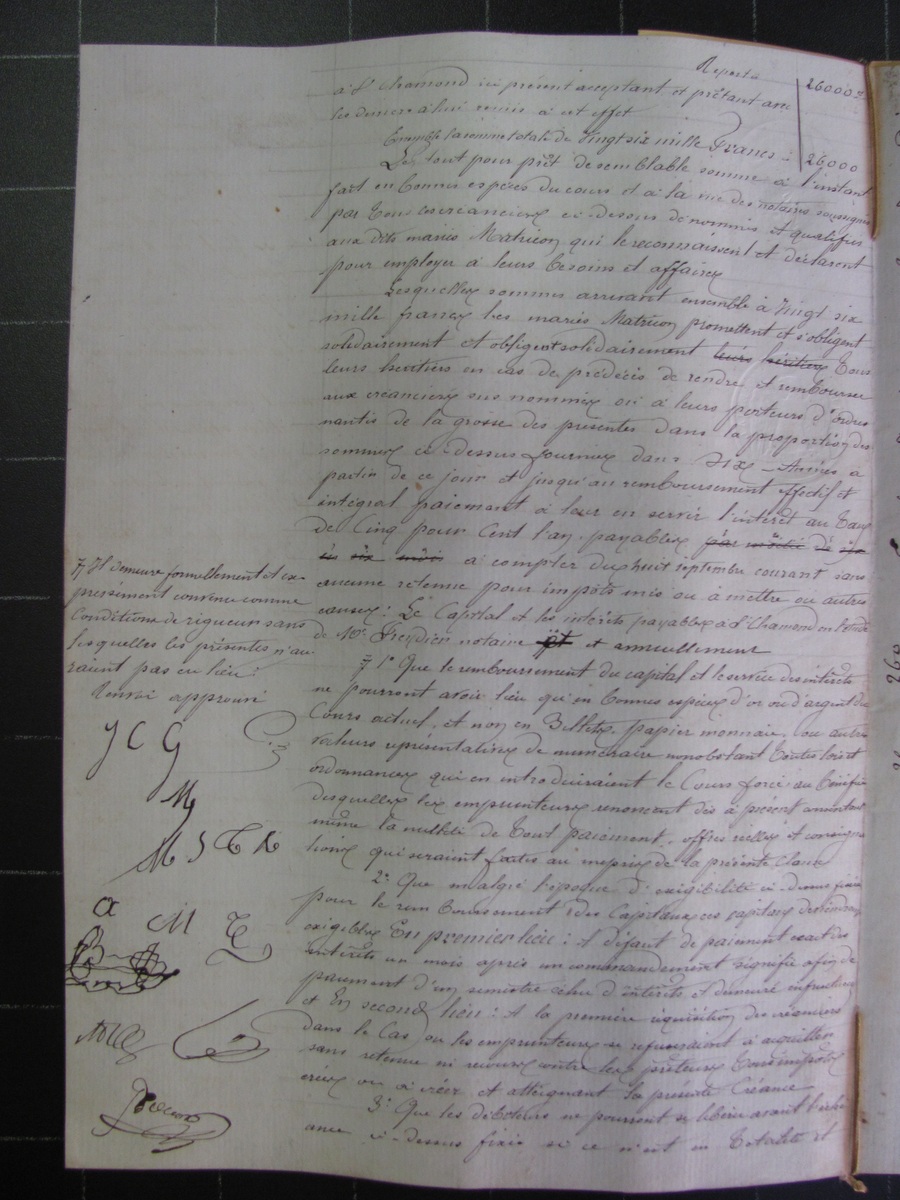 Report 26000
à St Chamond ici présent acceptant et prêtant avec
les deniers à lui remis à cet effet
Ensemble la somme totale de Vingt six mille Francs 26,000
Le tout pour prêt de semblable somme à l'instant
fait en bonnes espèces du cours et à la vue des notaires soussignés
par tous les créanciers ci-dessus dénommés et qualifiés
aux dits mariés Matricon qui le reconnaissent et déclarent
pour employer à leurs besoins et affaires
Lesquelles sommes arrivant ensemble à Vingt six
mille francs les mariés Matricon promettent et s'obligent
solidairement et obligent solidairement leurs héritiers tous
leurs héritiers en cas de prédécès de rendre et rembourser
aux créanciers sus nommés ou à leurs porteurs d'ordres
nantis de la grosse des présentes dans la proportion des
sommes ci-dessus fournies dans Six Années à
partir de ce jour et jusqu'au remboursement effectif et
intégral paiement à leur en servir l'intérêt au taux
de Cinq pour Cent l'an, payables par moitié de six
en six mois à compter du huit septembre courant sans
aucune retenue pour impôts mis ou à mettre ou autres
causes: Le Capital et les intérêts payables à St Chamond en l'étude
de Me Freydier notaire et annuellement
1° Que le remboursement du capital et le service des intérêts
ne pourront avoir lieu qu'en bonnes espèces d'or ou d'argent du
Cours actuel, et non en Billets, papier monnaie, ou autres
valeurs représentatives de numéraire nonobstant toutes lois et
ordonnances qui en introduiraient le Cours forcé au bénéfice
desquelles les emprunteurs renoncent dès à présent
même la nullité de tout paiement, offres réelles et consigna
tions qui seraient faites au mépris de la présente Clause
2° Que malgré l'époque d'exigibilité ci-dessus fixée
pour le remboursement des Capitaux ces capitaux deviendraient
exigibles En premier lieu: A défaut de paiement exact des
intérêts un mois après un commandement signifié afin de
paiement d'un semestre échu d'intérêts et demeuré infructueux
et En second lieu: A la première réquisition des créanciers
dans le Cas où les emprunteurs se refuseraient à acquitter
sans retenue ni recours contre les prêteurs tous impôts
créés ou à créer et atteignant la présente Créance
3° Que les débiteurs ne pourront se libérer avant l'éché
ance ci-dessus fixée si ce n'est en totalité et
Il demeure formellement et ex-
pressément convenu comme
Conditions de rigueur sans
lesquelles les présentes n'au-
raient pas eu lieu:
Renvoi approuvé
J C G
M
M S
M